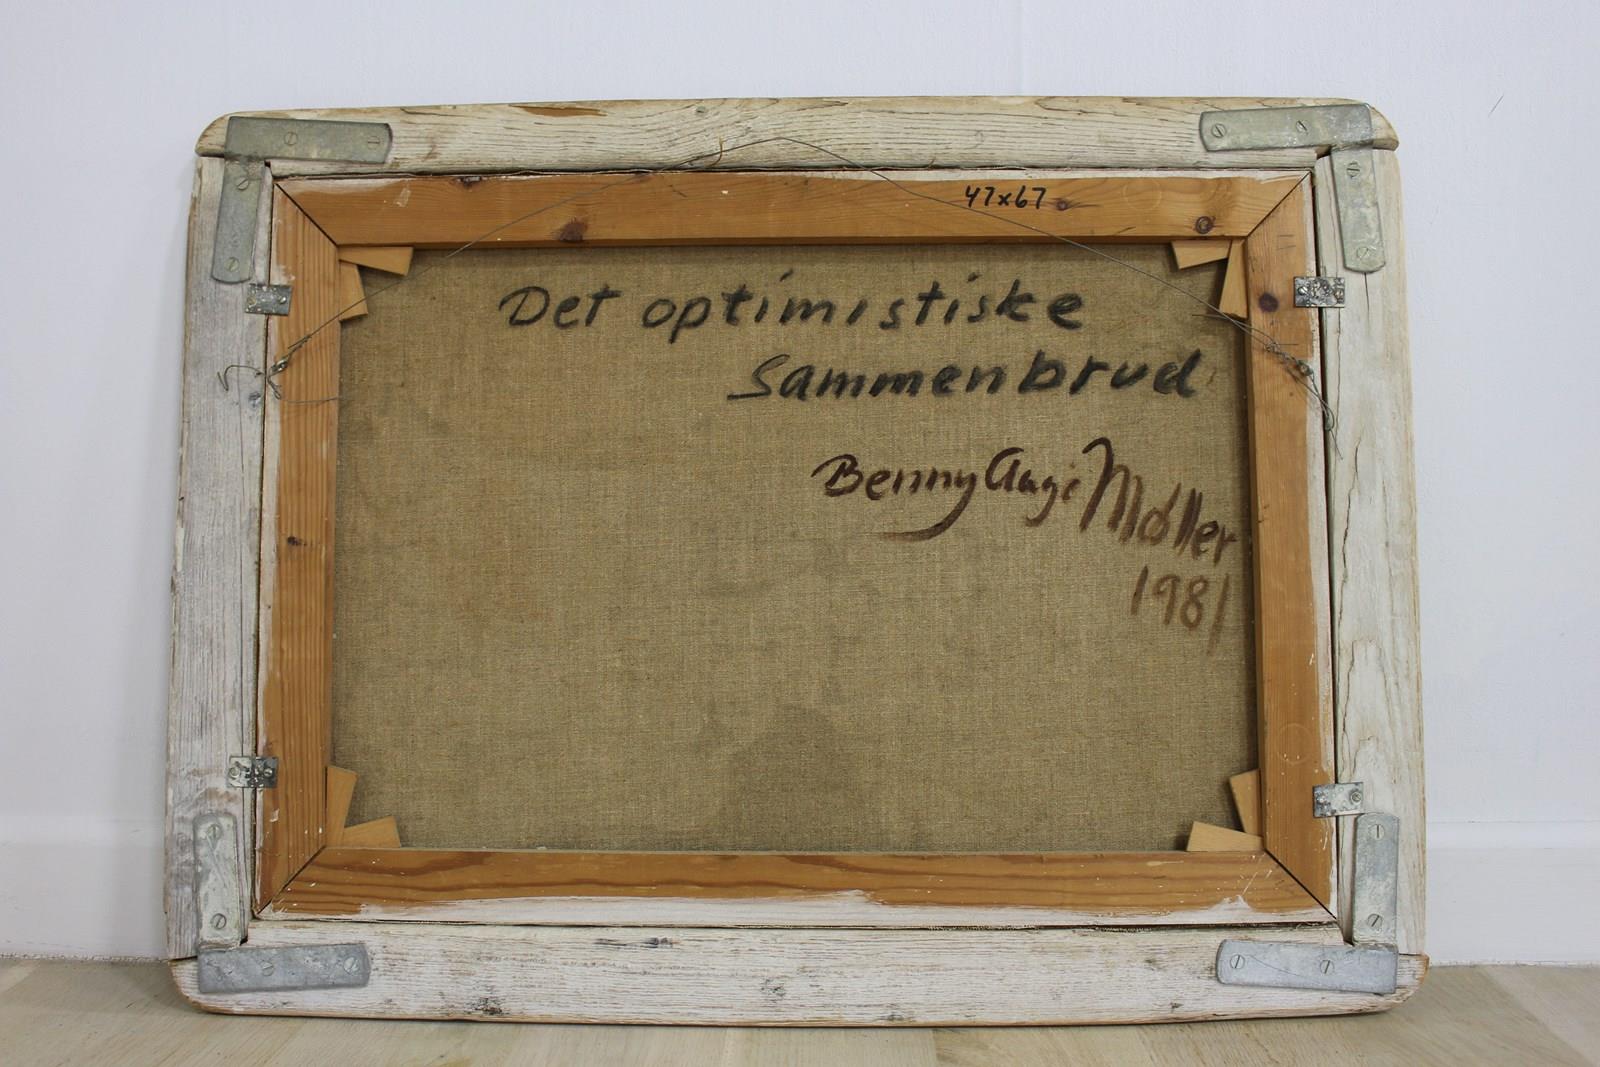 47x67
Det optimistiske
Sammenbrud
Benny Aage Møller
1981